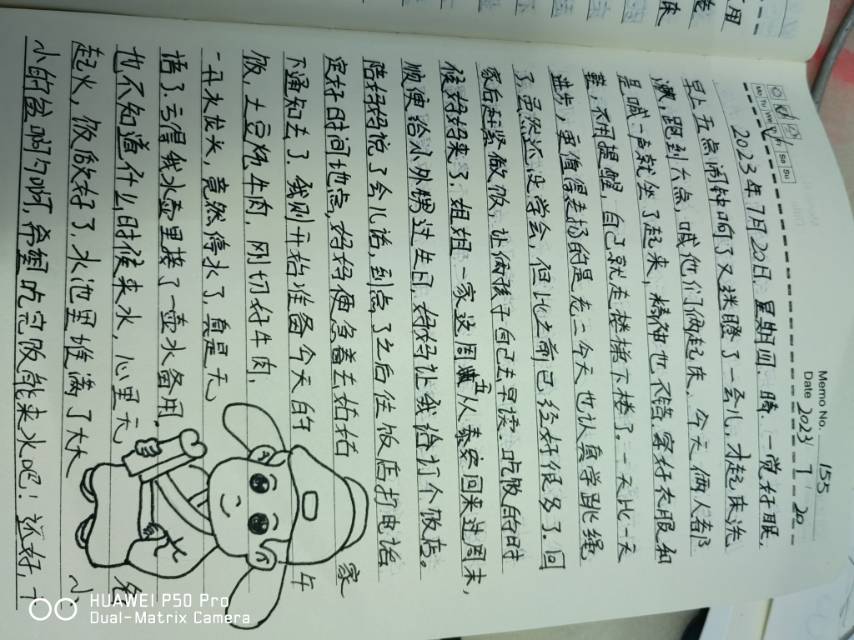 Memo No. 155
Date 2023 7 20
Mo Tu We Th Fr Sa Su
2023年7月20日 星期四 晴 一觉好眠,
早上五点闹钟响了又迷瞪了一会儿,才起床洗
漱,跑到六点,喊他们俩起床,今天俩人都
是喊一声就坐了起来,精神也不错,穿好衣服和
鞋,不用提醒,自己就走楼梯下楼了。一天比一天
进步,更值得表扬的是老二今天也认真学跳绳
了,虽然还没学会,但比之前已经好很多了。回
家后赶紧做饭,让俩孩子自己去早读。吃饭的时
候妈妈来了,姐姐一家这周五从泰安回来过周末,
顺便给小外甥过生日,妈妈让我给打个饭店。
陪妈妈说了会儿话,到点了之后往饭店打电话
定好时间地点,妈妈便急着去姑姑家
下通知去了。我则开始准备今天的午
饭,土豆炖牛肉,刚切好牛肉,
一开水龙头,竟然停水了,真是无
语了,亏得我水壶里接了一壶水备用,
也不知道什么时候来水,心里无
起火,饭做好了,水池里堆满了大大小
小的盆啊勺啊,希望吃完饭能来水吧!还好,下
HUAWEI P50 Pro
Dual-Matrix Camera